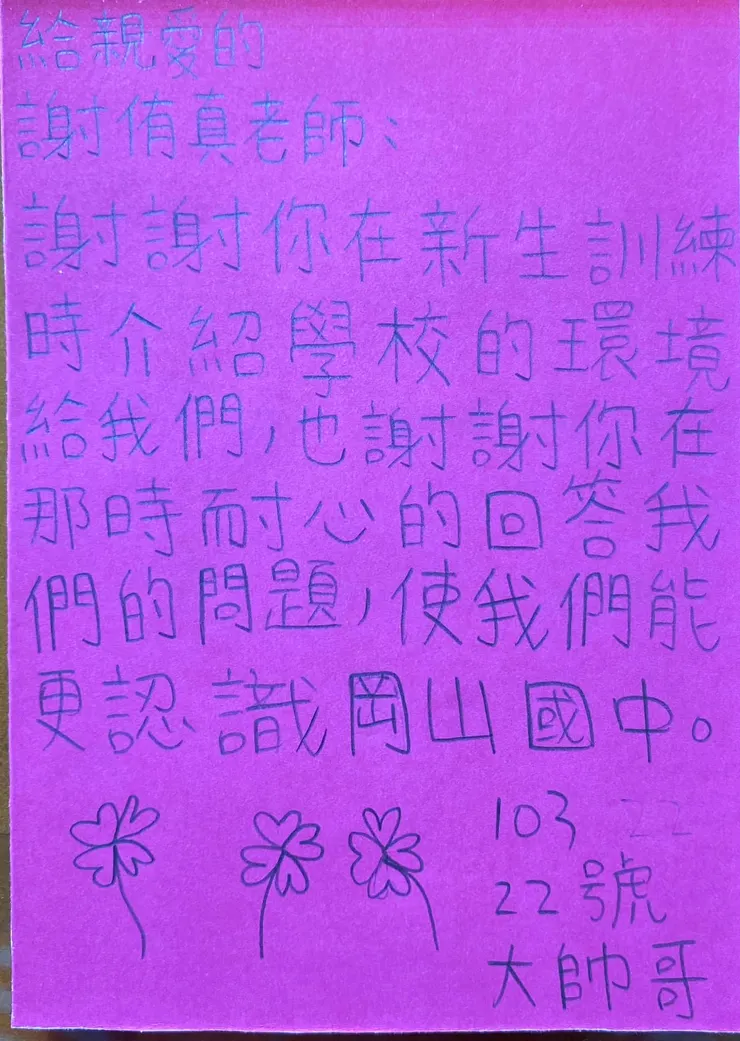 給親愛的
謝侑真老師：
謝謝你在新生訓練
時介紹學校的環境
給我們，也謝謝你在
那時耐心的回答我
們的問題，使我們能
更認識岡山國中。
103 22
22號
大帥哥